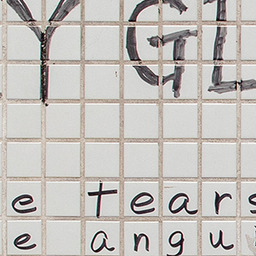 Y GL
e tears
e angu